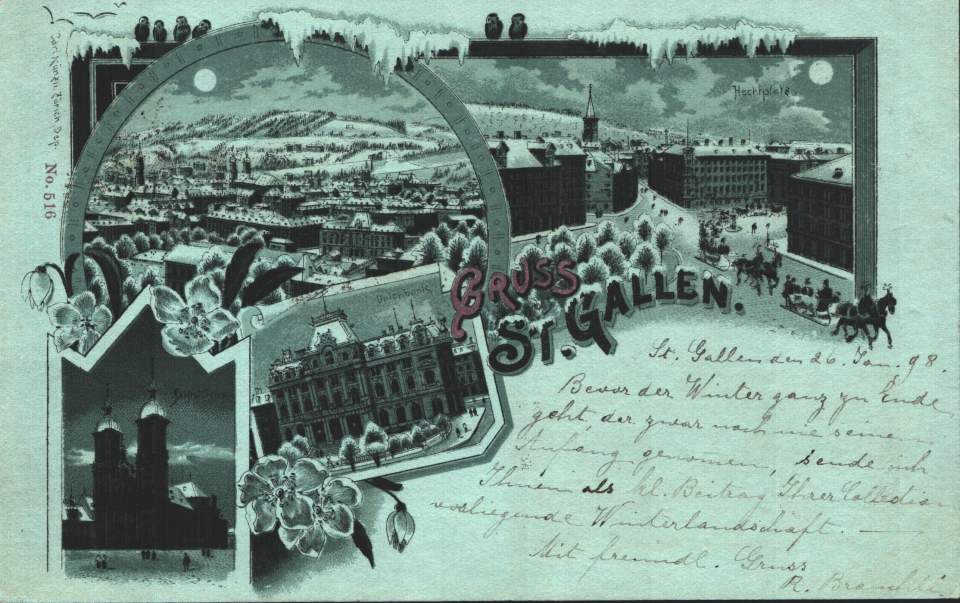 Carl Künzli, Zürich Dep.
No. 516
Hechtplatz.
Unionbank
GRUSS
ST. GALLEN.
St. Gallen den 26. Jan. 98.
Bevor der Winter ganz zu Ende
geht, der zwar noch nie seinen
Anfang genomen, sende ich
Ihnen als kl. Beitrag Ihrer Collection
vorliegende Winterlandschaft. —
Mit freundl. Gruss
R.